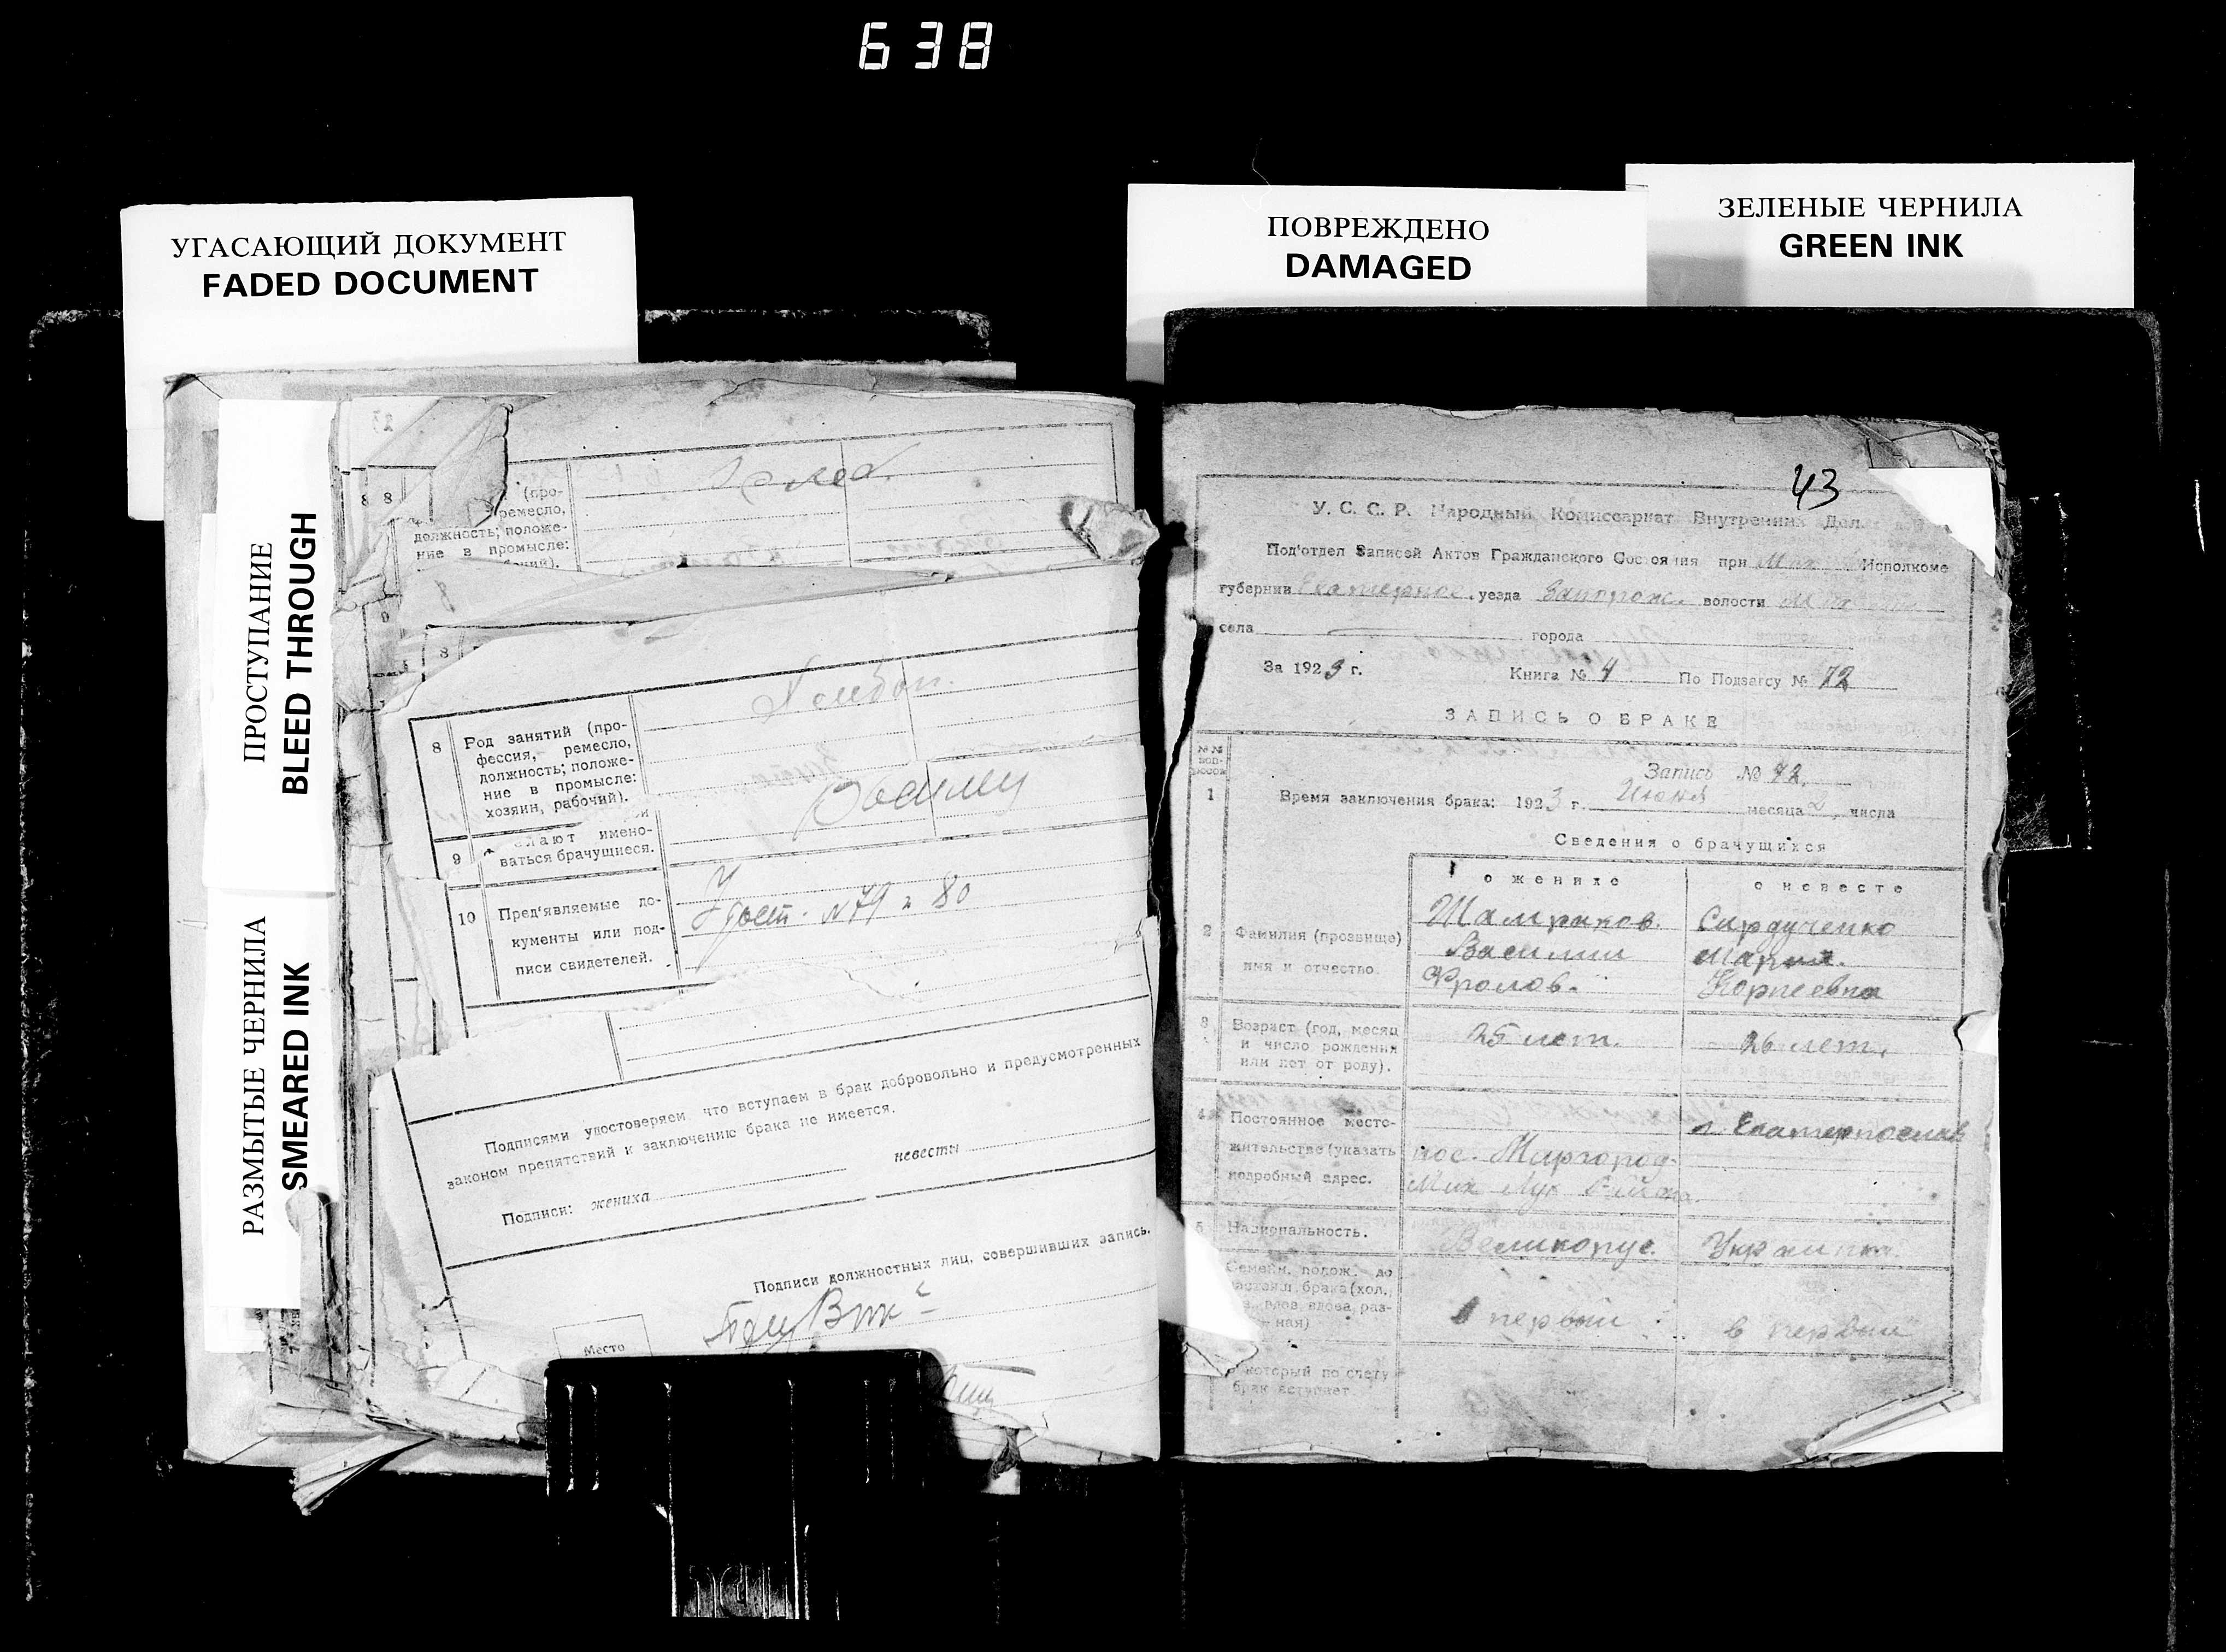 638
УГАСАЮЩИЙ ДОКУМЕНТ
FADED DOCUMENT
ПОВРЕЖДЕНО
DAMAGED
ЗЕЛЕНЫЕ ЧЕРНИЛА
GREEN INK
ПРОСТУПАНИЕ
BLEED THROUGH
РАЗМЫТЫЕ ЧЕРНИЛА
SMEARED INK
8 8
(про-
ремесло,
должность; положе-
ние в промысле:
9
8
8 Род занятий (про-
фессия, ремесло,
должность; положе-
ние в промысле:
хозяин, рабочий).
9
имено-
ваться брачущиеся.
10 Пред'являемые до-
кументы или под-
писи свидетелей.
Удост. № 79 и 80
Подписями удостоверяем, что вступаем в брак добровольно и предусмотренных
законом препятствий к заключению брака не имеется.
Подписи: жениха невесты
Подписи должностных лиц, совершивших запись.
Место
43
У. С. С. Р. Народный Комиссариат Внутренних Дел.
Под'отдел Записей Актов Гражданского Состояния при Исполкоме
губернии Екатеринос. уезда Запорож. волости
села города
За 1923 г. Книга № 4 По Подзагсу № 72
ЗАПИСЬ О БРАКЕ
№№ воп-росов
Запись № 72.
1 Время заключения брака: 1923 г. Июня месяца 2 числа
Сведения о брачущихся
о женихе о невесте
2 Фамилия (прозвище)
имя и отчество
Василий
Фролов.
Мария.
Корнеевна
3 Возраст (год, месяц
и число рождения
или лет от роду).
25 лет. 26 лет.
4 Постоянное место-
жительстве (указать
подробный адрес.
пос. Миргород-
г. Екатеринослав
5 Национальность.
Великорус. Украинка.
Семейн. полож. до
брака (хол.,
вдов, вдова, раз-
ная)
первый в первый
который по счету
брак вступает